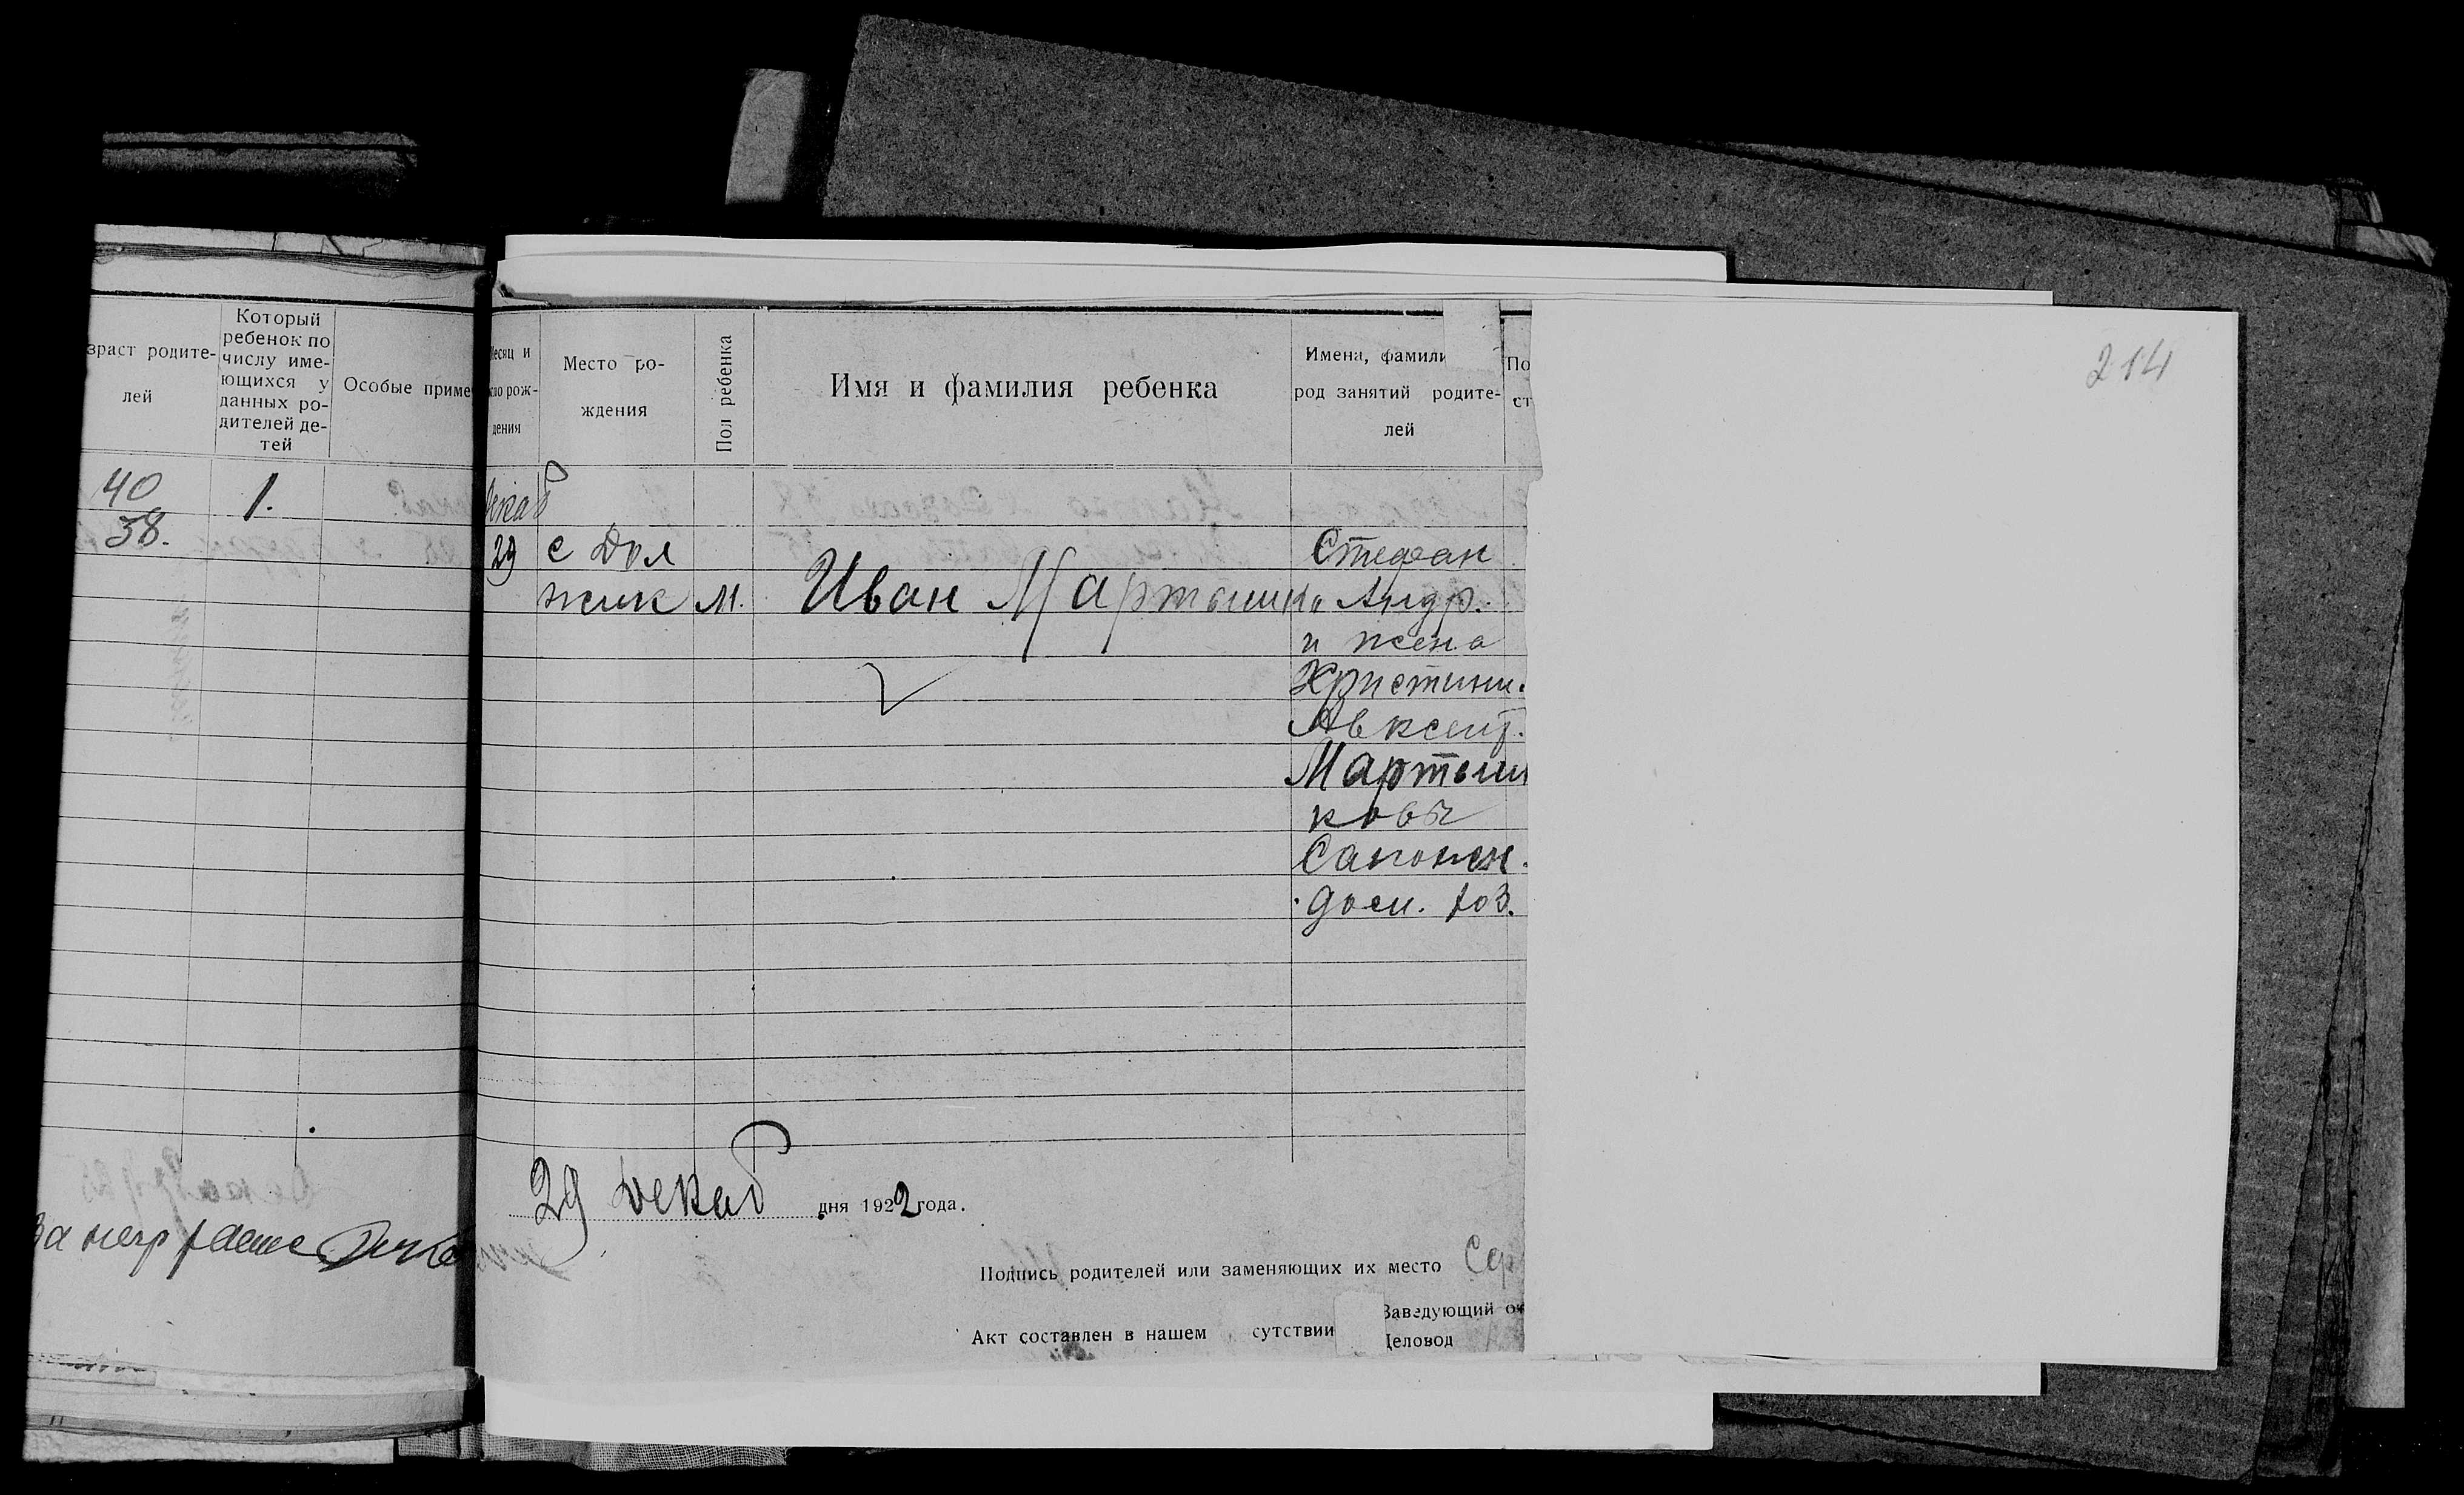 214
зраст родите-
лей
Который
ребенок по
числу име-
ющихся у
данных ро-
дителей де-
тей
Особые приме
40
38.
1.
есяц и
ло рож-
дения
Место ро-
ждения
Пол ребенка
Имя и фамилия ребенка
Имена, фамили
род занятий родите-
лей
По
ст
декаб
29
с Дол
жик
М.
Иван Мартынк
Стефан
Андр.
и жена
Христин.
Авксент.
Мартын
ковы
Сапожн.
дом. хоз.
29 Декаб дня 1922 года.
Подпись родителей или заменяющих их место
Заведующий
Акт составлен в нашем сутствии
Деловод